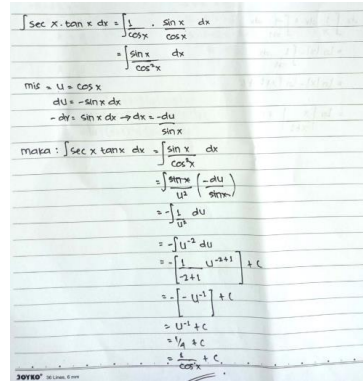 ∫sec x . tan x dx = ∫ 1/cos x . sin x/cos x dx
= ∫ sin x/cos²x dx
mis = u = cos x
du = -sin x dx
- du = sin x dx → dx = -du/sin x
maka : ∫sec x tanx dx = ∫ sin x/cos²x dx
= ∫ sin x/u² (-du/sin x)
= -∫ 1/u² du
= -∫ u⁻² du
= -[1/-2+1 u⁻²⁺¹] + c
= -[-u⁻¹] + c
= u⁻¹ + c
= 1/u + c
= 1/cos x + c
JOYKO 36 Lines, 6 mm